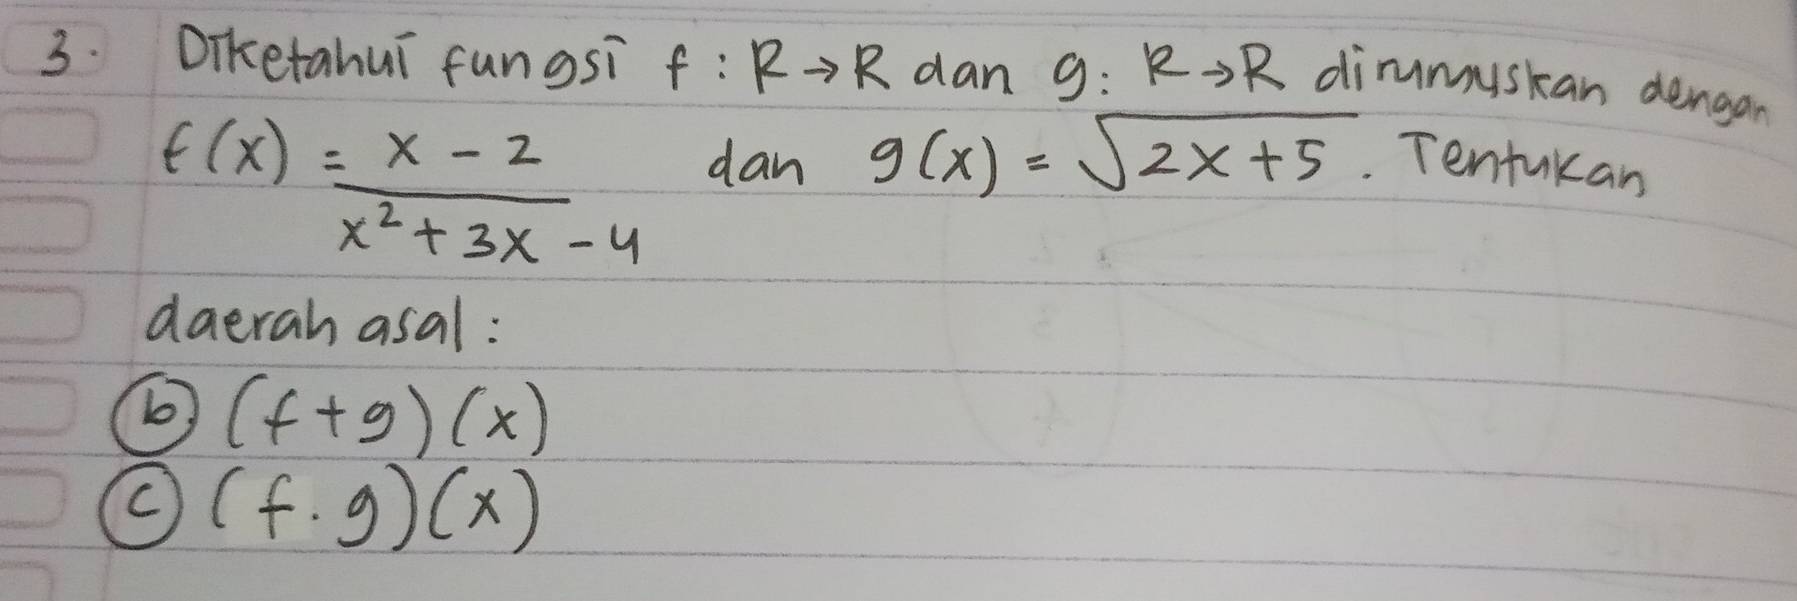 3. Diketahui fungsi f : R → R dan g : R → R dirumuskan dengan
f(x) = x - 2 / x² + 3x - 4 dan g(x) = √2x + 5 . Tentukan
daerah asal :
b) (f + g) (x)
c) (f . g) (x)